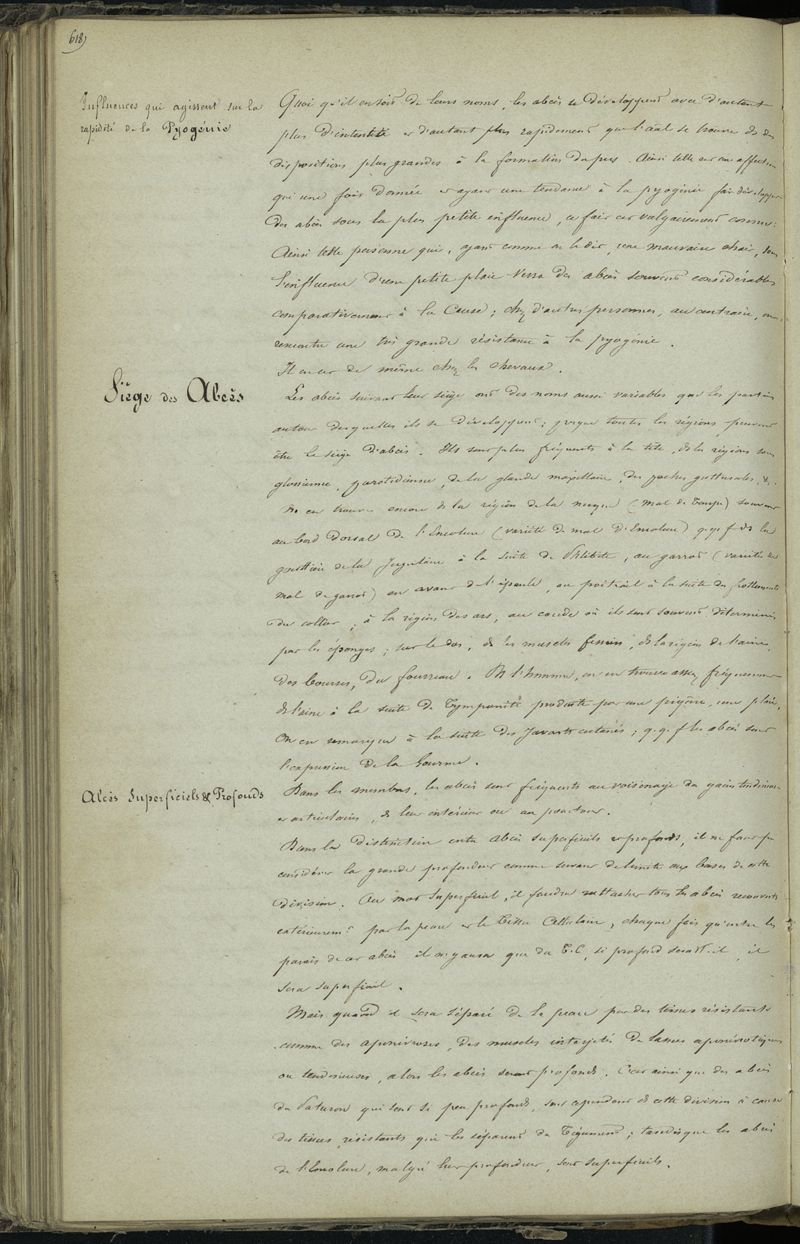 618)
Influences qui agissent sur la
rapidité de la Pyogénie
Quoi qu'il en soit de leurs noms, les abcès se développent avec d'autant
plus d'intensité et d'autant plus rapidement que l'āāl se trouve ds des
dispositions plus grandes à la formation du pus. Ainsi telle affection
qui une fois donnée et ayant une tendance à la pyogénie fait développer
des abcès sous la plus petite influence, ce fait est vulgairement connu.
Ainsi telle personne qui, ayant comme on le dit, une mauvaise chair, sous
l'influence d'une petite plaie verra des abcès souvent considérables
comparativement à la Cause; chez d'autres personnes, au contraire, on
rencontre une très grande résistance à la pyogénie.
Il en est de même chez les chevaux.
Siège des Abcès
Les abcès suivant leur siège ont des noms aussi variables que les parties
autour desquelles ils se développent; presque toutes les régions peuvent
être le siège d'abcès. Ils sont plus fréquents à la tête, ds les régions sous
glossienne, parotidienne, de la glande maxillaire, des poches gutturales, &.
On en trouve encore ds la région de la nuque (mal de Taupe) souvent
au bord dorsal de l'Encolure (variété de mal d'Encolure) q.q.f ds la
gouttière de la Jugulaire à la suite de Phlébite, au garrot (variété de
mal de garrot) en avant de l'épaule, au poitrail à la suite des frottements
du collier, à la région des ars, au coude où ils sont souvent déterminés
par les éponges; sur le dos, ds les muscles fessiers, ds la région de l'aine,
des bourses, du fourreau. Ds l'homme, on en trouve assez fréquemment
ds l'aine à la suite de Tympanite produite par une piqûre, une plaie,
On en remarque à la suite des Javarts cutanés; q.q.f les abcès sont
l'expression de la Gourme.
Dans les membres, les abcès sont fréquents au voisinage des gaines tendineuses
et articulaires, ds leur intérieur ou au pourtour.
Abcès Superficiels & Profonds
Dans la distinction entre abcès superficiels et profonds, il ne faut pas
considérer la grande profondeur comme servant de limite aux bases de cette
division. Au mot Superficiel, il faudra rattacher tous les abcès recouverts
extérieuremt par la peau et le Tissu Cellulaire, chaque fois qu'entre les
parois de cet abcès il n'y aura que du T.C, si profond serait-il, il
sera superficiel.
Mais quand il sera séparé de la peau par des tissus résistants
comme des aponévroses, des muscles interjetés de lames aponévrotiques
ou tendineuses, alors les abcès seront profonds. C'est ainsi que des abcès
du Paturon qui sont si peu profonds, sont cependant ds cette division à cause
des tissus résistants qui les séparent du Tégument; tandis que les abcès
de l'Encolure, malgré leur profondeur, sont superficiels.